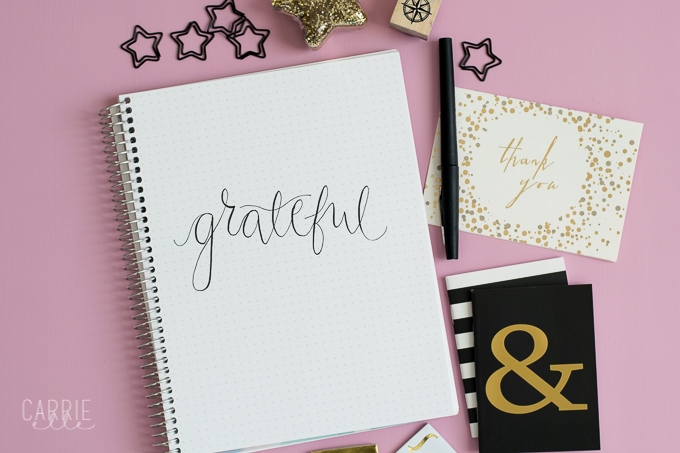 grateful
thank
you
&
CARRIE
elle